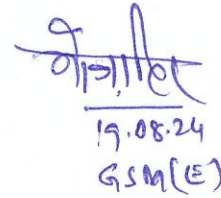 19.08.24
GSM(E)